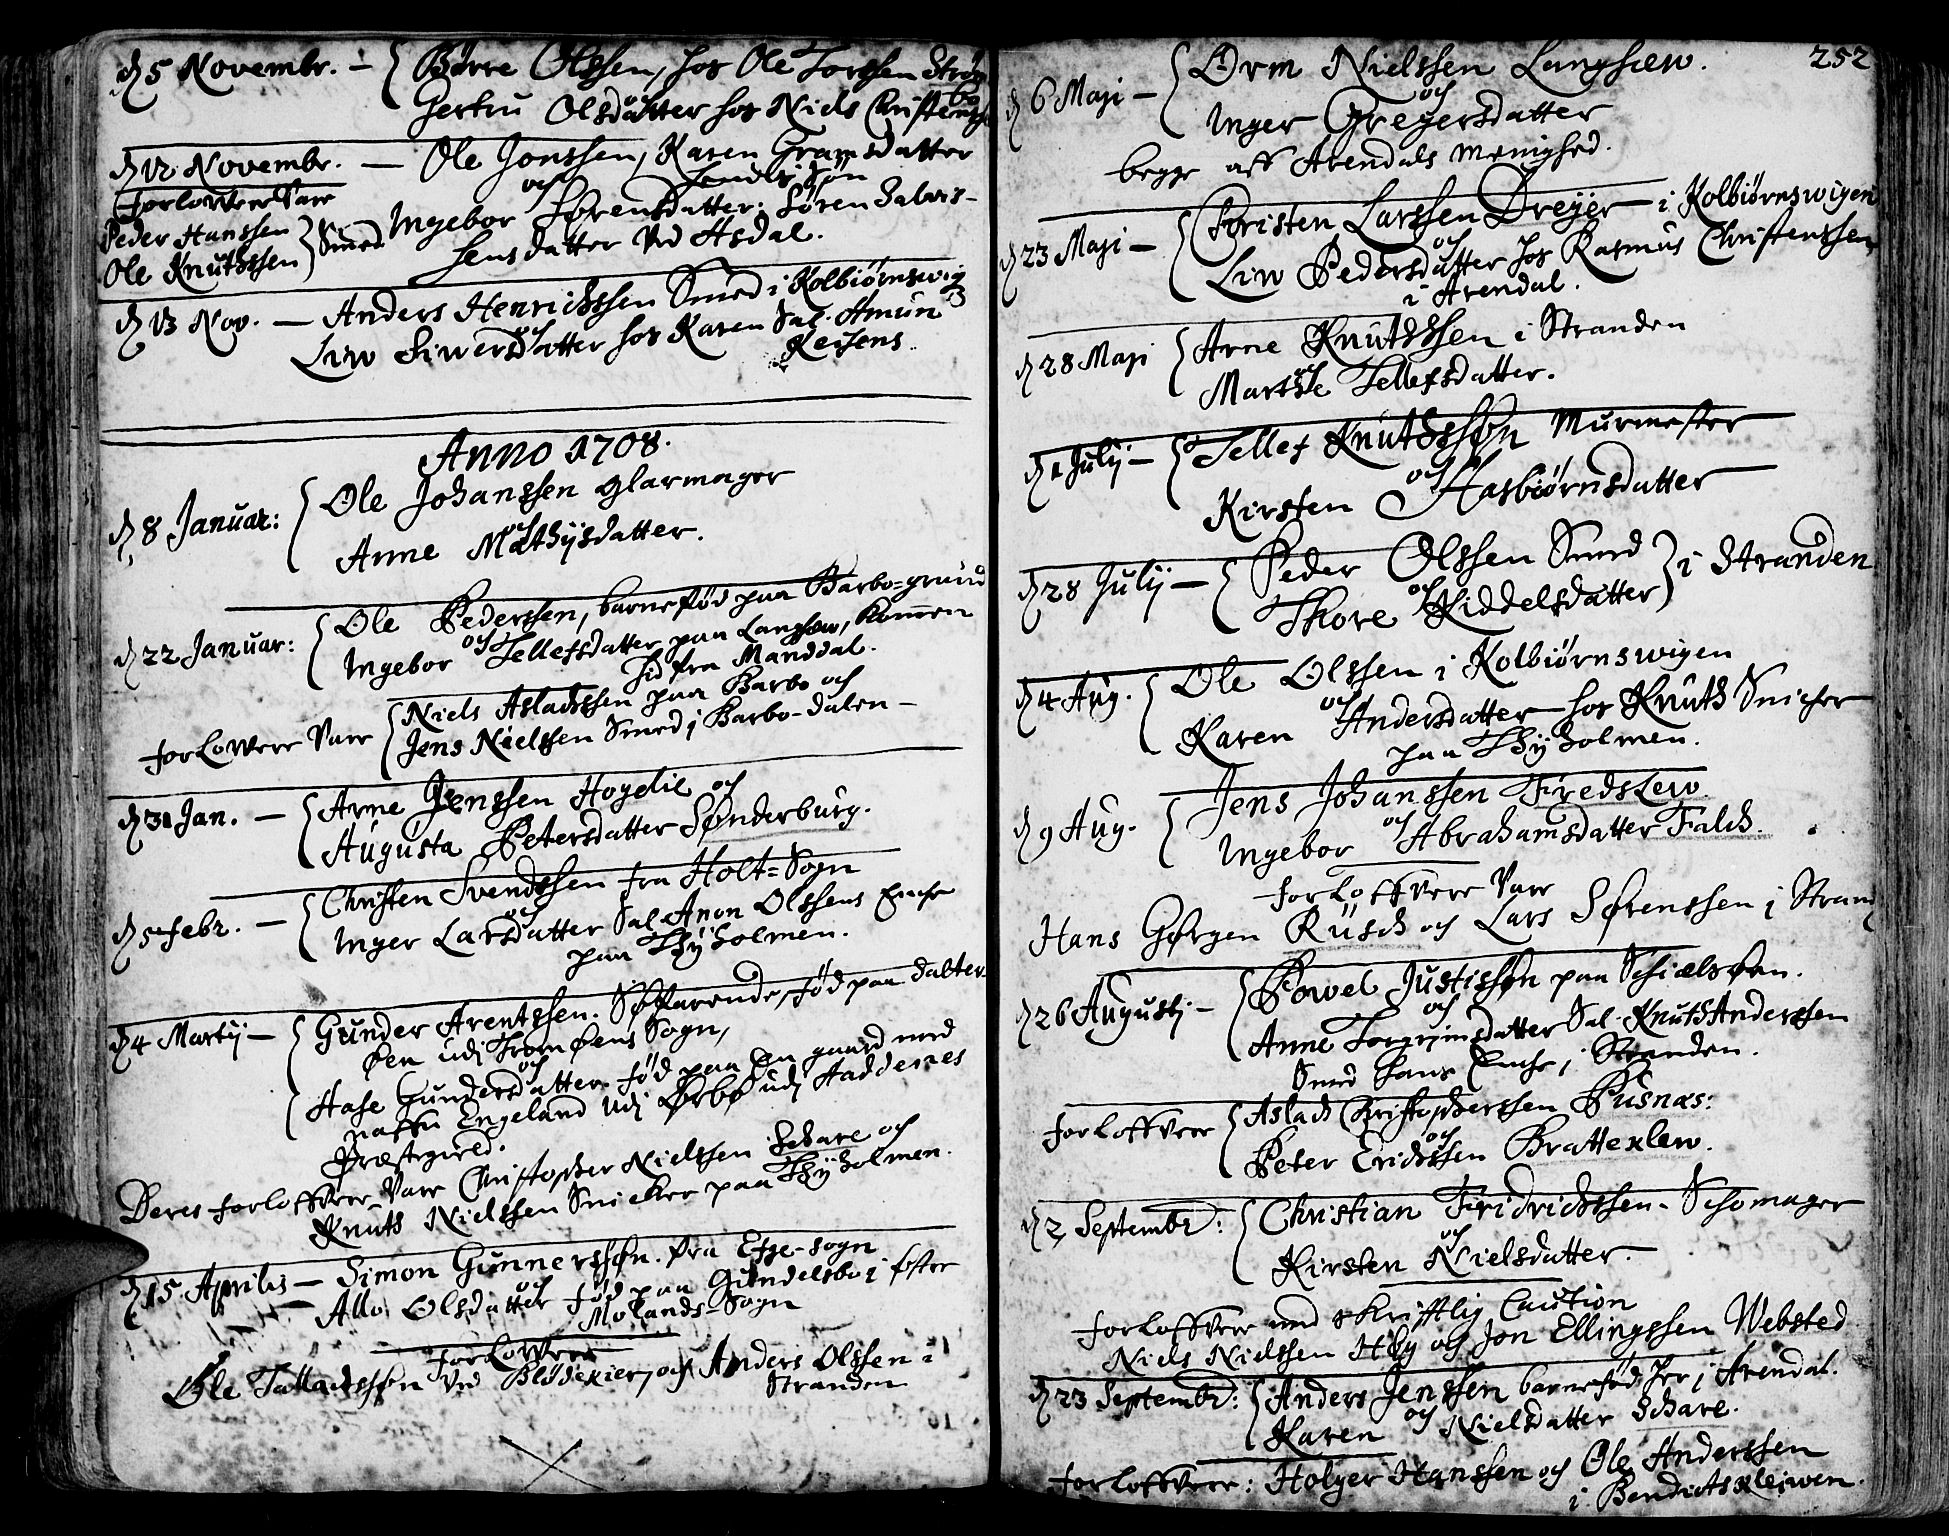 d 5 Novembr. — Børre Olssen, hos Ole Torssen
og
Gertru Olsdatter hos Niels
d 12 Novembr. — Ole Jonssen, Karen Gramsdatter
og
Forlovere Vare
Ingebor Sørensdatter: Søren Salvis-
Peder Hanssen
Smed
Ole Knutssen
sens datter ved Asdal.
d 13 Nov. — Anders Henrichssen Smed i Kolbiørnswig
og
Liw Siwersdatter hos Karen Sal. Amun
Keisens
Anno 1708.
d 8 Januar: Ole Johanssen glarmager
og
Anne Mathijsdatter.
d 22 Januar: Ole Pederssen, barnefød paa Barbo-grund
og
Ingebor Tellefsdatter paa Langsew, kommen
hid fra Manddal.
forlovere Vare Niels Asladssen paa Barbo och
Jens Nielssen Smed i Barbo-dalen —
d 31 Jan. — Arne Jenssen Hogdil och
Augusta Petersdatter Sønderburg.
d 5 febr. — Christen Svendssen fra Holt-Sogn
og
Inger Larsdatter Sal. Anon Olssens Encke
paa Thijholmen.
d 4 Martij — Gunder Arentssen. Søfarende, fød paa
øen udj Tromøens Sogn,
og
Hase Gundersdatter fød paa En gaard med
naffn Engeland udj Ørbø udj Haddernes
Præstegield.
Deres forloffvere Vare Christopher Nielssen Schare och
Knuth Nielssen Snicker paa Thijholmen.
d 15 Aprilis — Simon Gunnerssøn fra Etse-sogn
og
Allo Olsdatter fød paa Gundelsbo i øster
Molands-Sogn
forlovere
Ole Tallachssøn ved Blødekier, och Anders Olssen i
Stranden
252
d 6 Maji — Orm Nielssen Langsæw.
og
Inger Gregersdatter
begge aff Arendals menighed.
d 23 Maji — Christen Larssen Dreyer — i Kolbiørnswigen
og
Liw Pedersdatter hos Rasmus Christenssen
i Arendal.
d 28 Maji Arne Knutssen i Stranden
og
Marthe Tellefsdatter.
d 1 Julij — Tellef Knuthssøn Murmester
og
Kirsten Hasbiørnsdatter
d 28 Julij — Peder Olssen Smed i Stranden
og
Thore Kiddelsdatter
d 4 Aug. Ole Olssen i Kolbiørnswigen
og
Karen Andersdatter hos Knuth Snicker
paa Thijholmen.
d 9 Aug. Jens Johanssen Fredslew.
og
Ingebor Abrahamsdatter Falch.
forloffvere Vare
Hans Gørgen Rüsch och Lars Sørenssen i Strand
d 26 Augustj — Powel Justissøn paa Schielsøen.
og
Anne Torgrimsdatter Sal. Knuth Anderssen
Smed hans Encke, i Stranden.
forloffvere Aslach Christopherssen Pusnæs:
og
Peter Erichssen Bratteklew.
d 2 Septembr: Christian Fridrichssen. Schomager
og
Kirsten Nielsdatter.
forloffvere med skrifftlig Caution
Niels Nielssen Høy og Jon Ellingssen Websted
d 23 Septembr: Anders Jenssen barnefød her i Arendal.
og
Karen Nielsdatter Schare.
forloffvere: Holger Hanssen och Ole Anderssen
i Bendictskleiwen.